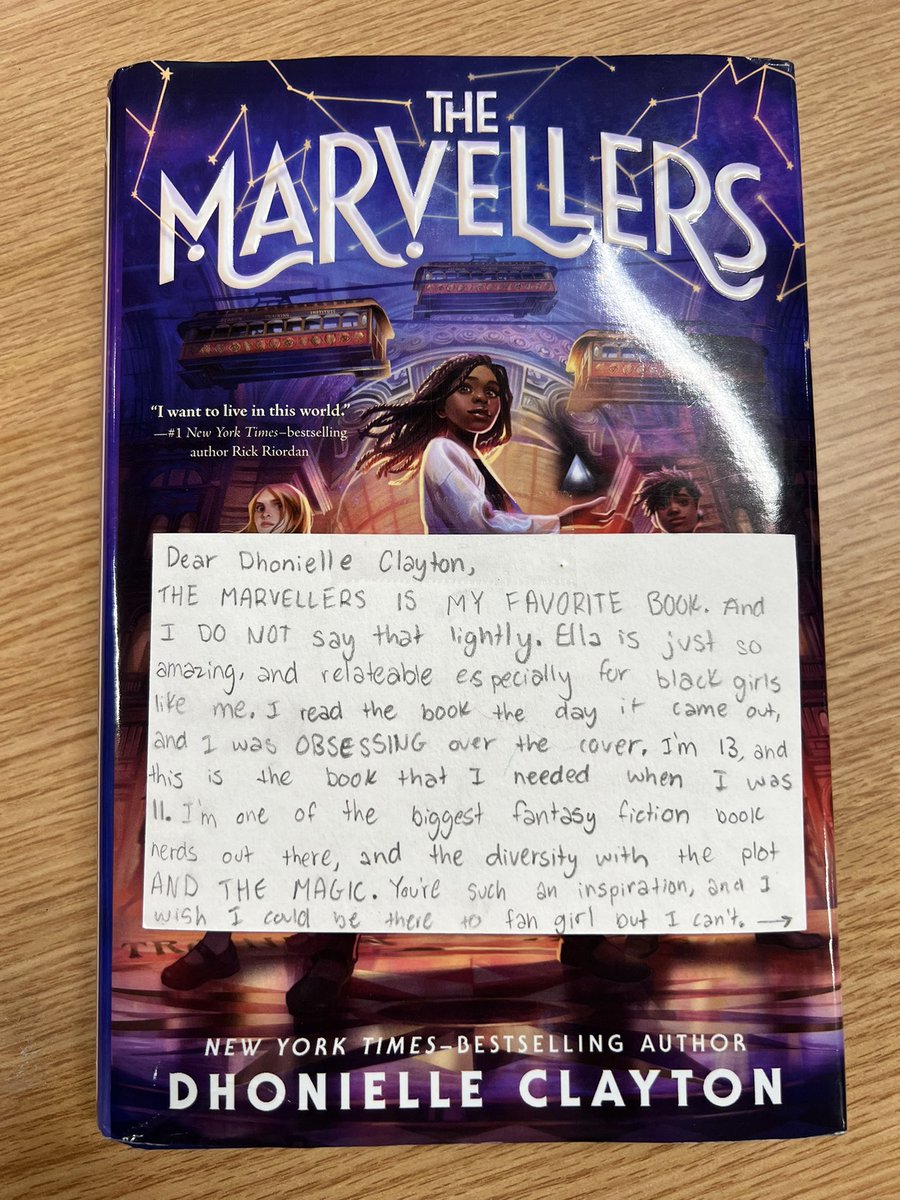 THE
MARVELLERS
INSTITUTE
"I want to live in this world."
—#1 New York Times–bestselling
author Rick Riordan
Dear Dhonielle Clayton,
THE MARVELLERS IS MY FAVORITE BOOK. And
I DO NOT say that lightly. Ella is just so
amazing, and relateable especially for black girls
like me. I read the book the day it came out,
and I was OBSESSING over the cover. I'm 13, and
this is the book that I needed when I was
11. I'm one of the biggest fantasy fiction book
nerds out there, and the diversity with the plot
AND THE MAGIC. You're such an inspiration, and I
wish I could be there to fan girl but I can't. →
NEW YORK TIMES–BESTSELLING AUTHOR
DHONIELLE CLAYTON